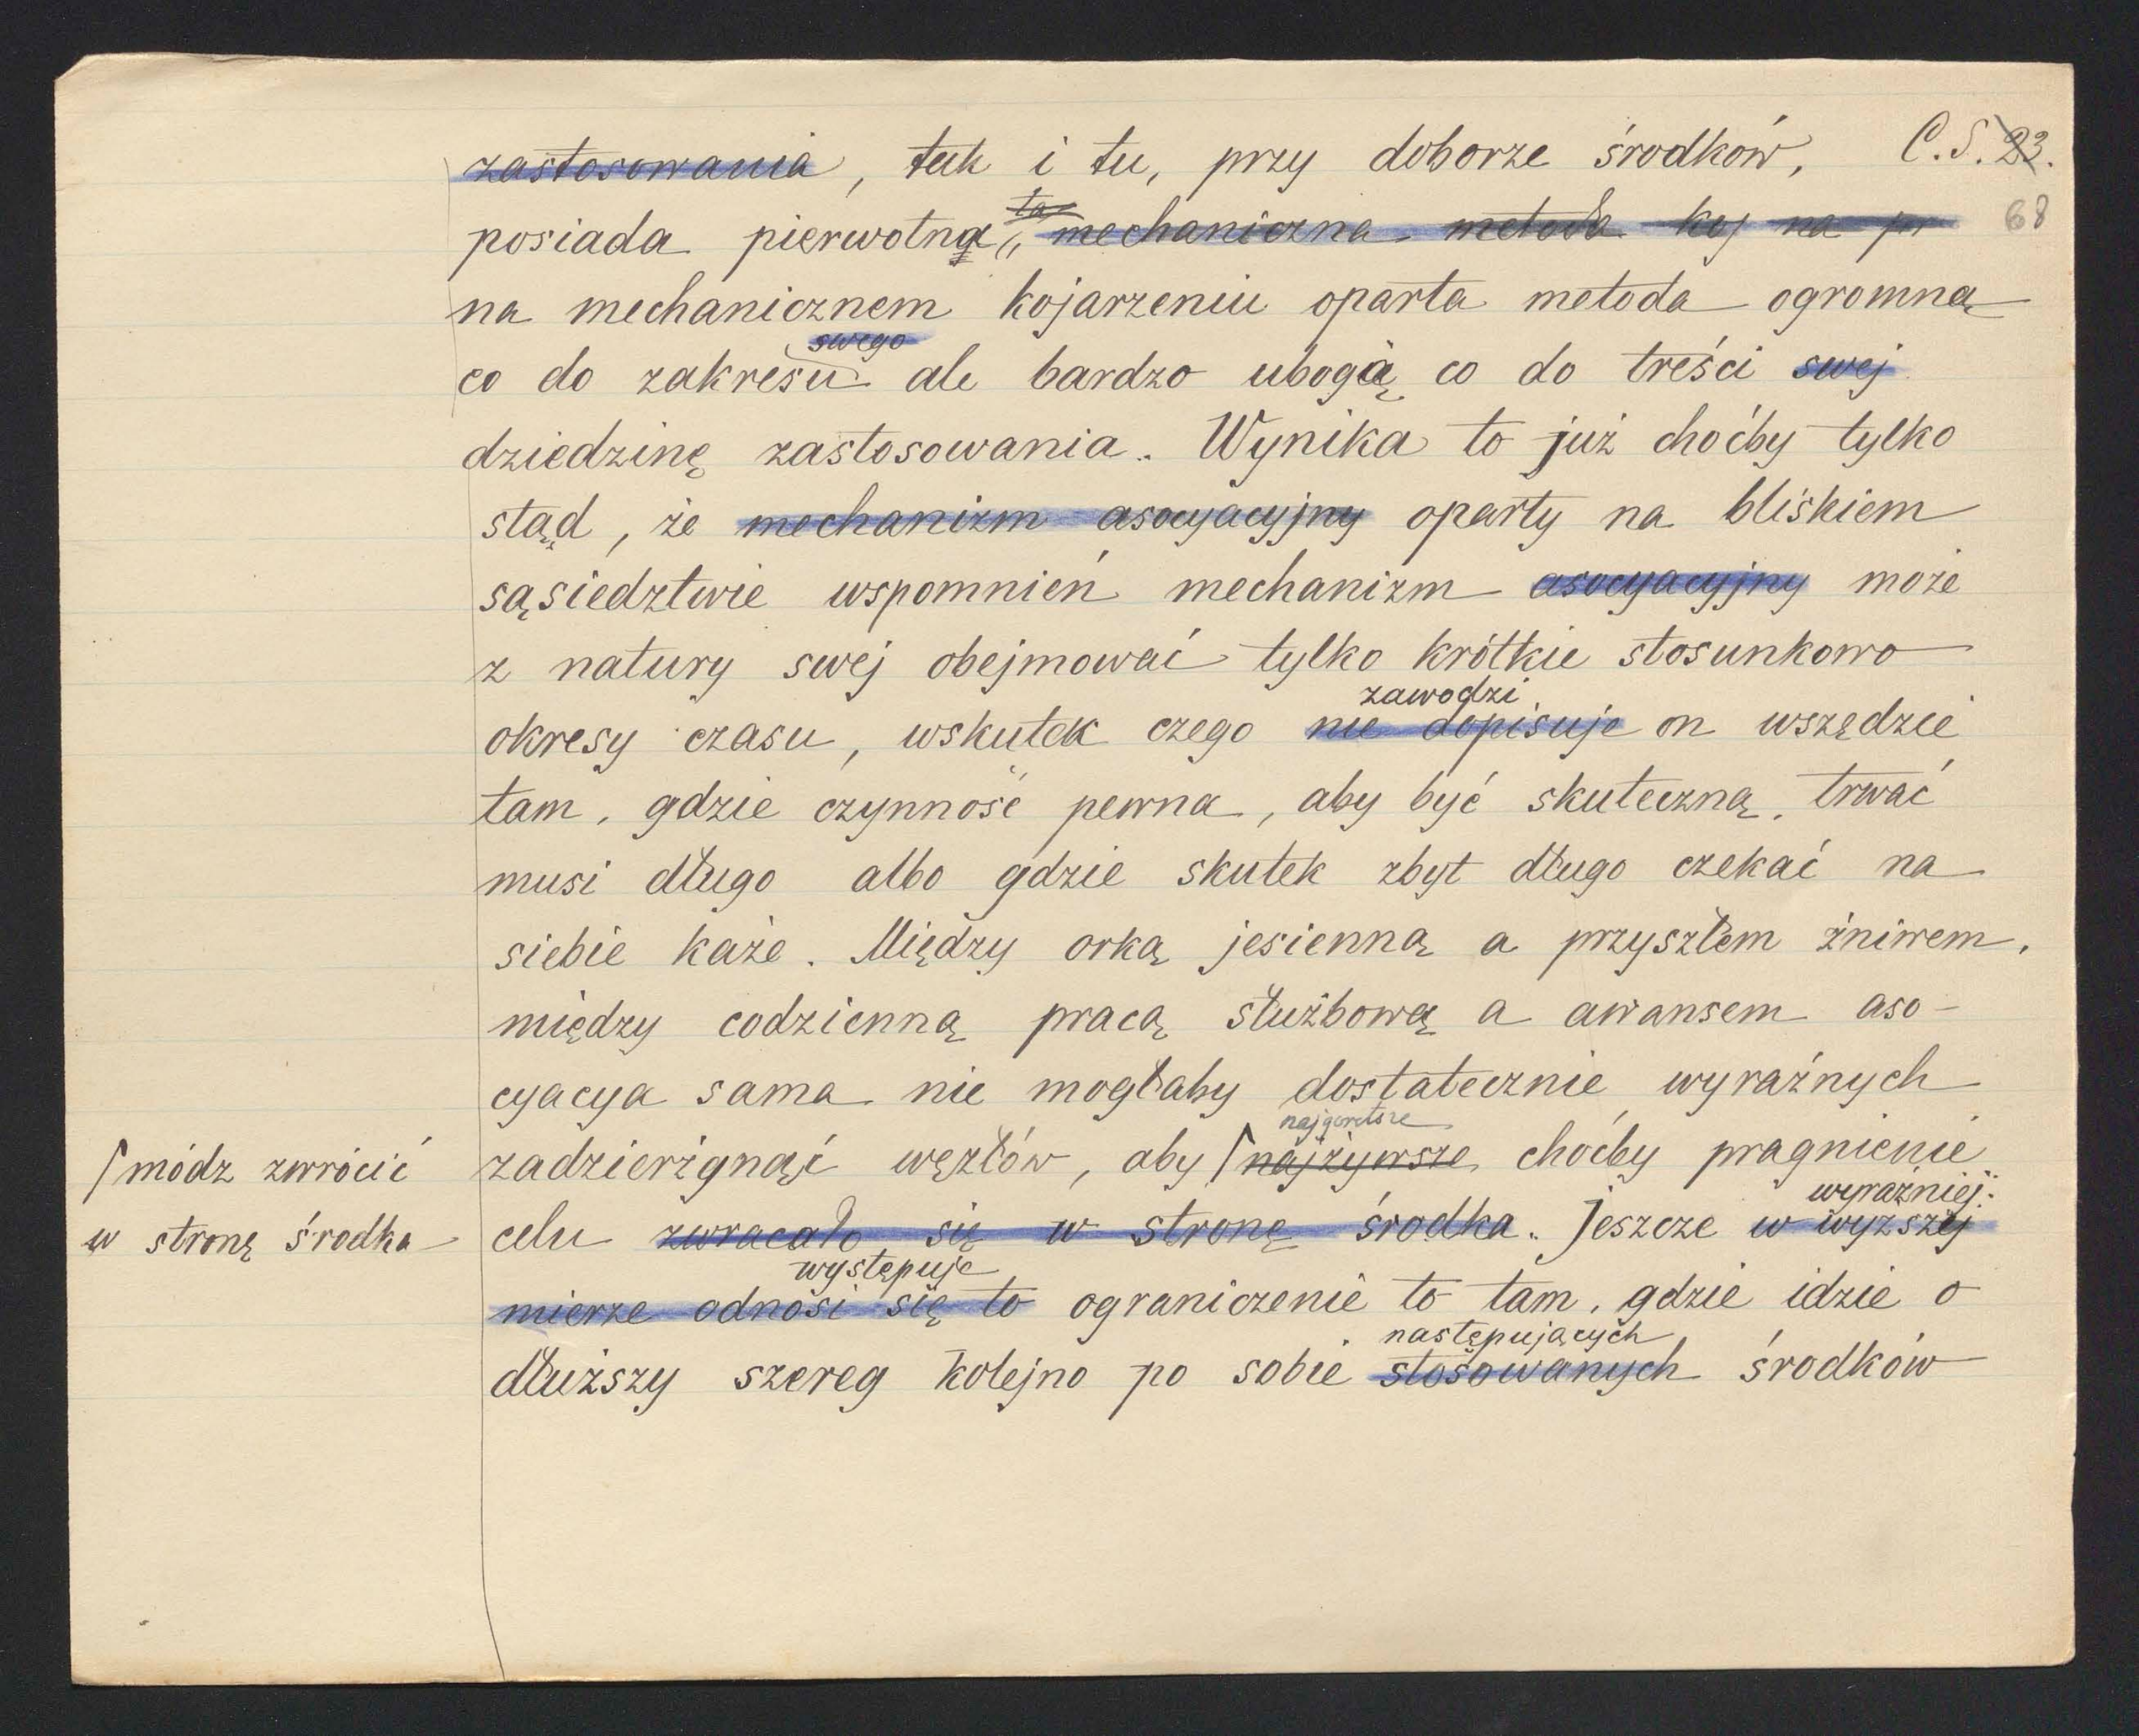 zastosowania, tak i tu, przy doborze środków, C.S. 23.
68
ta
posiada pierwotna, mechaniczna metoda koj na pr
na mechanicznem kojarzeniu oparta metoda ogromną
swego
co do zakresu ale bardzo ubogą co do treści swej
dziedzinę zastosowania. Wynika to już choćby tylko
stąd, że mechanizm asocyacyjny oparty na bliskiem
sąsiedztwie wspomnień mechanizm asocyacyjny może
z natury swej obejmować tylko krótkie stosunkowo
zawodzi
okresy czasu, wskutek czego nie dopisuje on wszędzie
tam, gdzie czynność pewna, aby być skuteczną, trwać
musi długo albo gdzie skutek zbyt długo czekać na
siebie każe. Między orką jesienną a przyszłem żniwem,
między codzienną pracą służbową a awansem aso-
cyacya sama nie mogłaby dostatecznie wyraźnych
najgorętsze
zadzierzgnąć węzłów, aby najżywsze choćby pragnienie
módz zwrócić
w stronę środka
wyraźniej
celu zwracało się w stronę środka. Jeszcze w wyższej
występuje
mierze odnosi się to ograniczenie to tam, gdzie idzie o
następujących
dłuższy szereg kolejno po sobie stosowanych środków